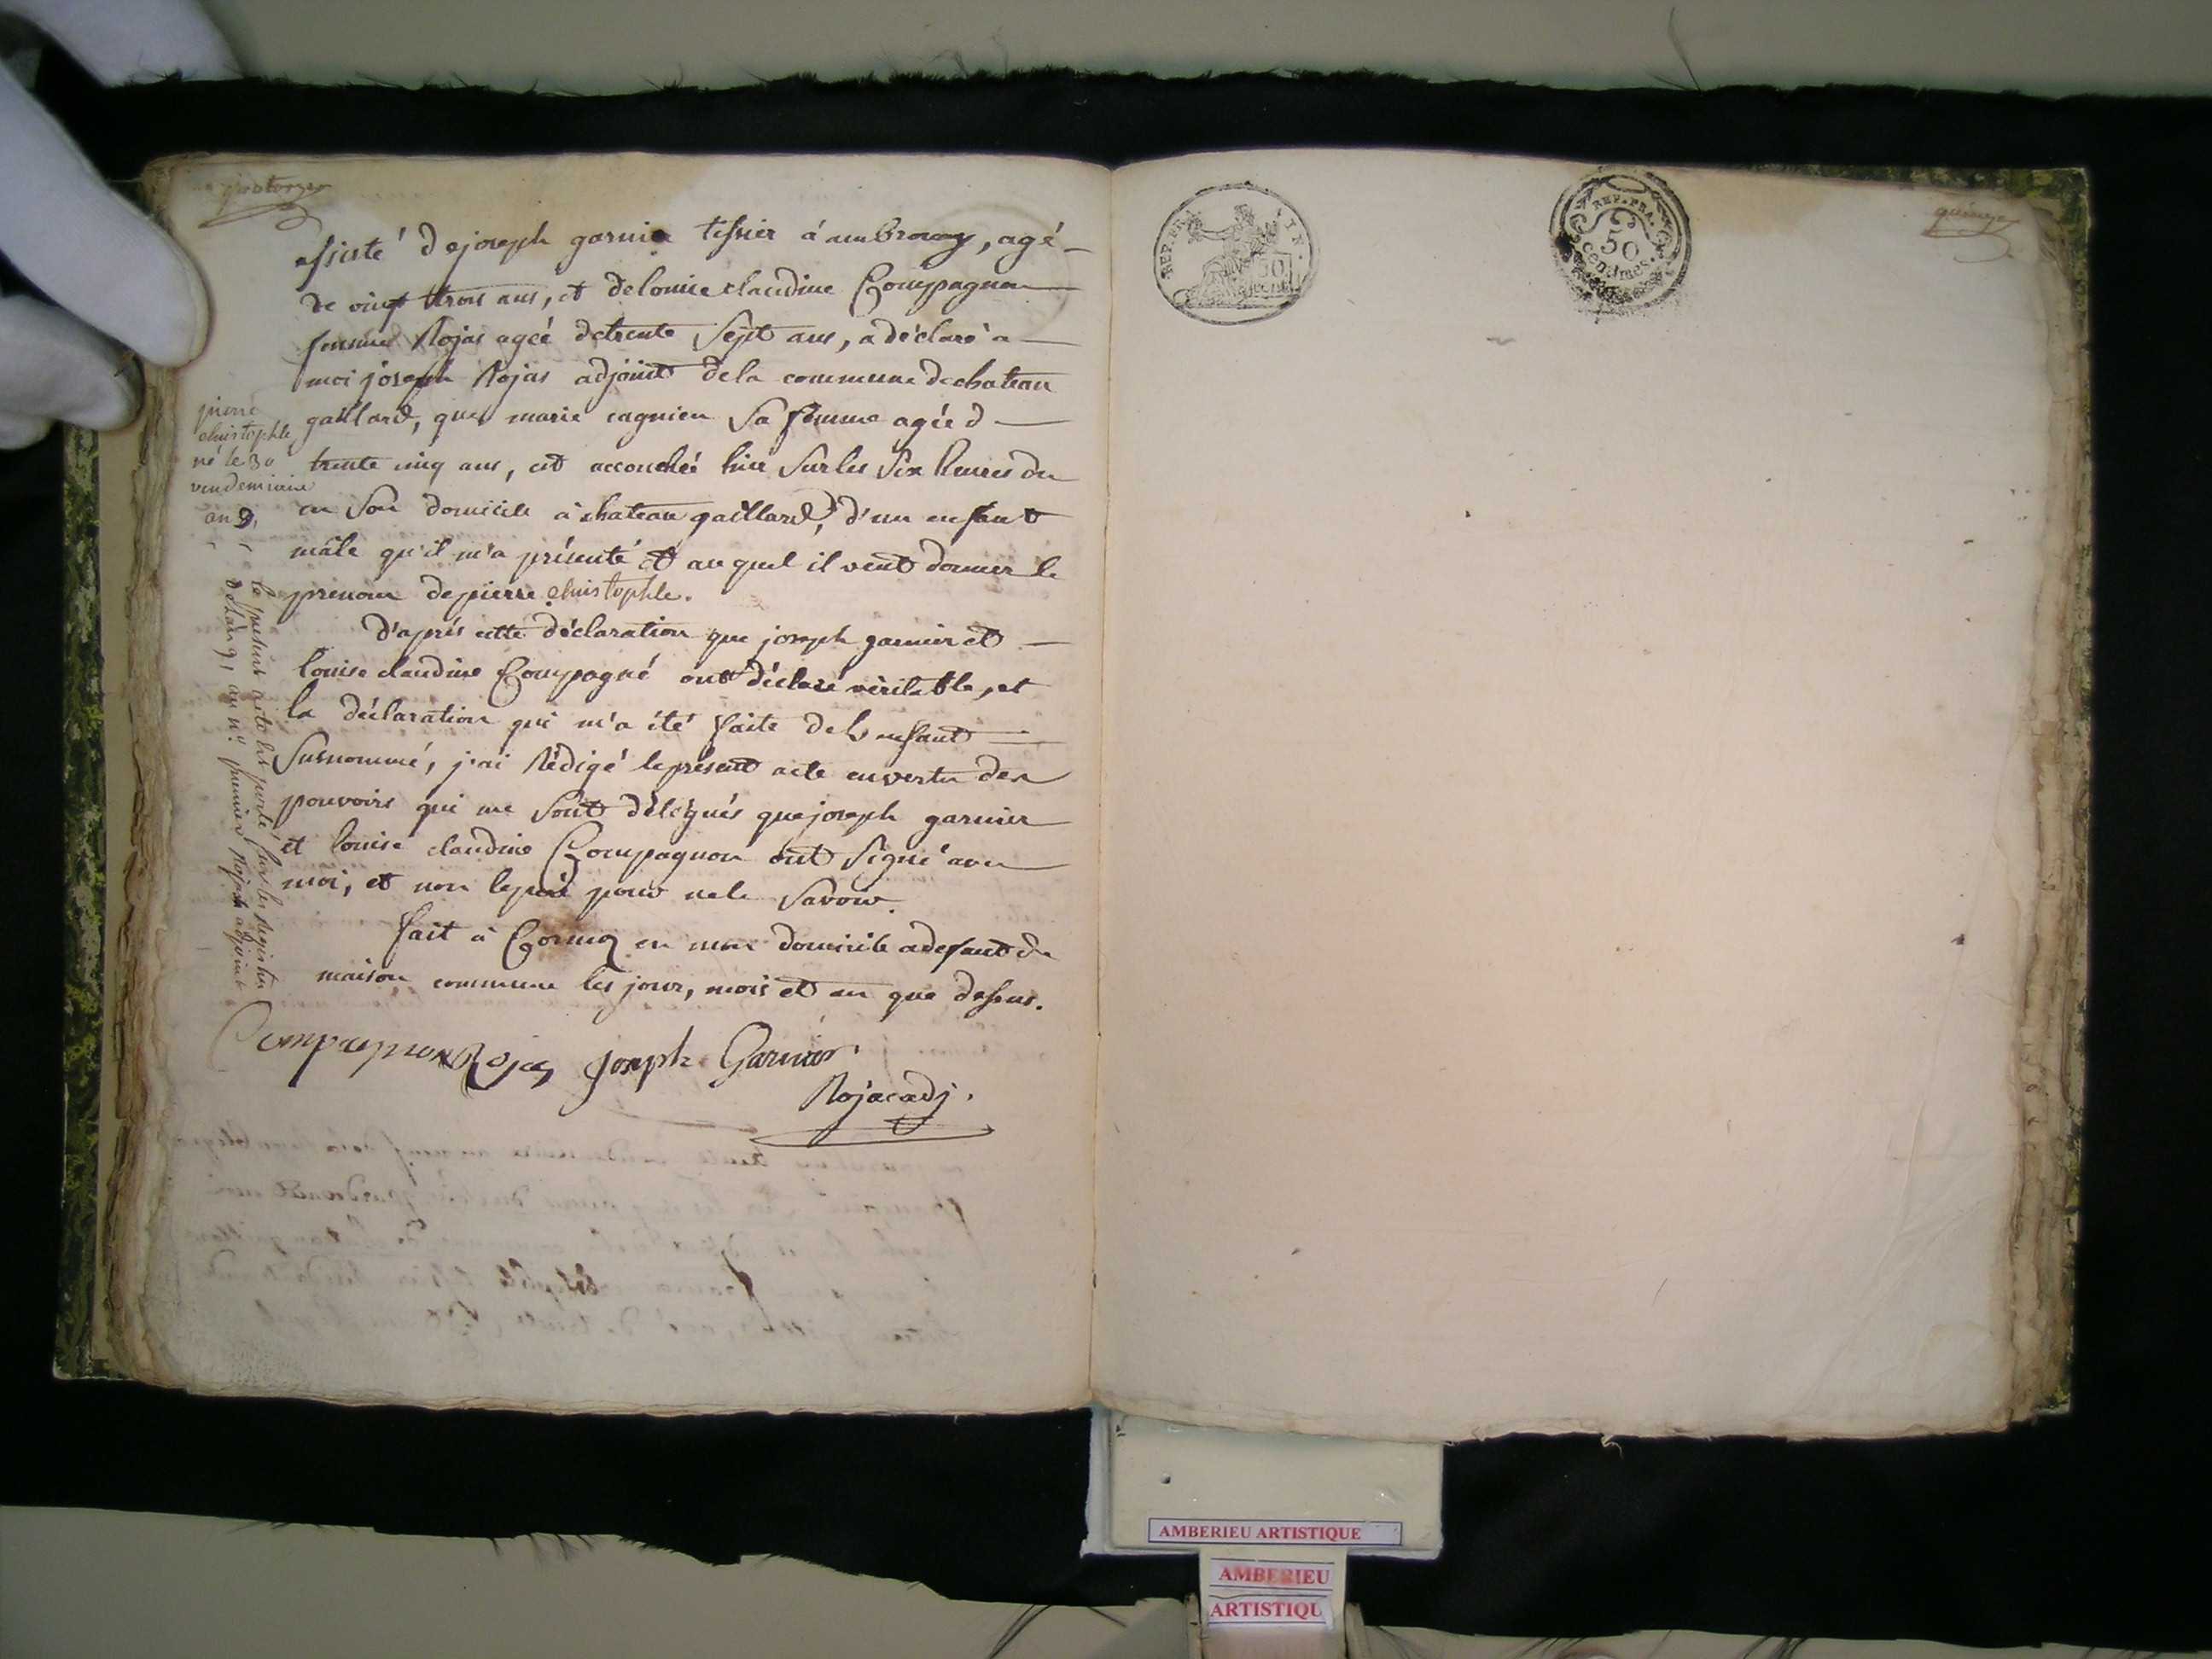 quatorze
assisté de joseph garnier tissier à ambronay, agé
de vingt trois ans, et de louise claudine Compagnon
femme Rojas ageé de trente Sept ans, a déclaré a
moi joseph Rojas adjoint de la commune de chateau
gaillard, que marie cagnien Sa femme agée d
trente cinq ans, est accouchéé hier Sur les Six heures du
en Son domicile à chateau gaillard, d'un enfant
mâle qu'il m'a présenté et au quel il veut donner le
prenom de pierre christophle.
pierre
christophle
né le 30
vendemiaire
an 9,
d'après cette déclaration que joseph garnier et
louise claudine Compagné ont déclaré véritable, et
la déclaration qui m'a été faite de l'enfant
Susnommé, j'ai Rédigé le présent acte en vertu des
pouvoirs qui me Sont délégués que joseph garnier
et louise claudine Compagnon ont Signé avec
moi, et non le pere pour ne le Savoir.
fait à Cormoz en mon domicile a defaut de
maison commune les jour, mois et an que dessus.
le présent acte est porté sur les registres
de l'an 9, au n° premier Rojas adjoint
Compagnon Rojas Joseph Garnier
Rojas adj.
REP. FRA.
50
REP. FRA.
50
Centimes.
quinze
AMBERIEU ARTISTIQUE
AMBERIEU
ARTISTIQU